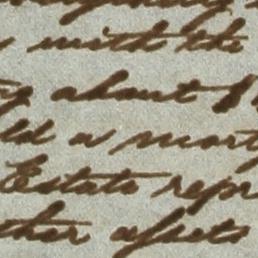 with the
about
ld a mort
Estate repr
ther assets